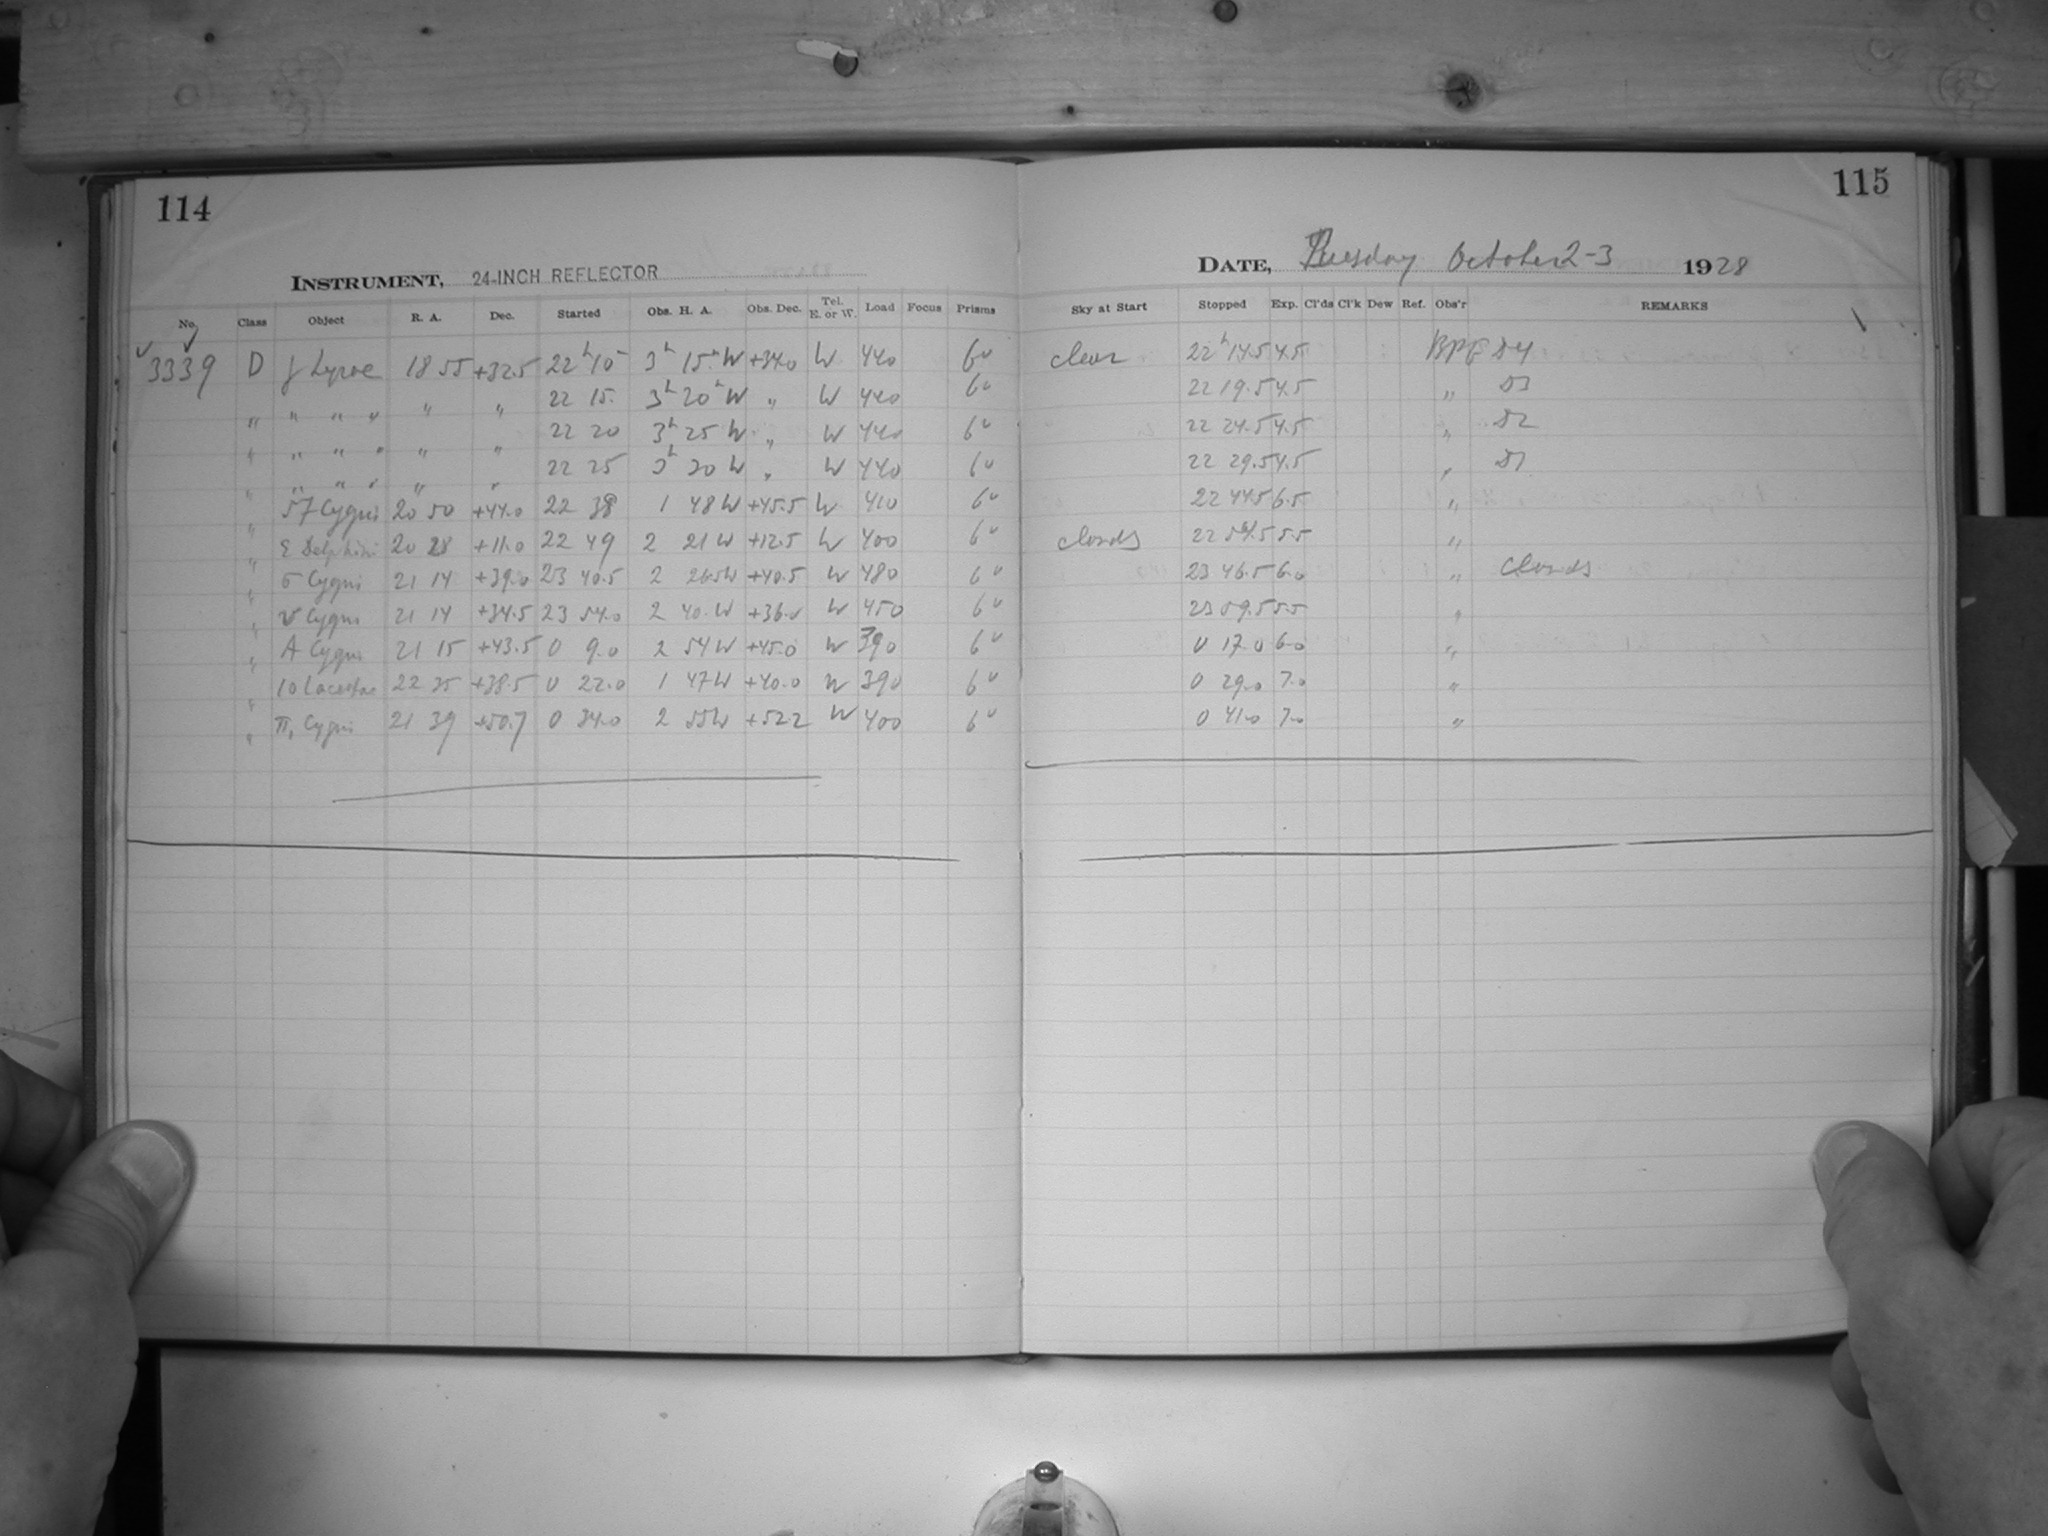 114
INSTRUMENT, 24-INCH REFLECTOR
No. Class Object R. A. Dec. Started Obs. H. A. Obs. Dec. Tel. E. or W. Load Focus Prisms
3339 D γ Lyrae 18 55 +32.5 22 h 10 3 h 15 W +34.0 W 440 6
" " " " " " 22 15 3 h 20 W " W 440 6
" " " " " " 22 20 3 h 25 W " W 440 6
" " " " " " 22 25 3 h 30 W " W 440 6
" 57 Cygni 20 50 +44.0 22 38 1 48 W +45.5 W 410 6
" ε Delphini 20 28 +11.0 22 49 2 21 W +12.5 W 400 6
" σ Cygni 21 14 +39.0 23 40.5 2 26.5 W +40.5 W 480 6
" υ Cygni 21 14 +34.5 23 54.0 2 40 W +36.0 W 450 6
" A Cygni 21 15 +43.5 0 9.0 2 54 W +45.0 W 390 6
" 10 Lacertae 22 35 +38.5 0 22.0 1 47 W +40.0 W 390 6
" π, Cygni 21 39 +50.7 0 34.0 2 55 W +52.2 W 400 6
115
DATE, Tuesday October 2-3 1928
Sky at Start Stopped Exp. Cl'ds Cl'k Dew Ref. Obs'r REMARKS
clear 22 h 14.5 4.5
22 19.5 4.5 "
22 24.5 4.5 "
22 29.5 4.5 "
22 44.5 6.5 "
clouds 22 54.5 5.5 "
23 46.5 6.0 " clouds
23 59.5 5.5 "
0 17.0 6.0 "
0 29.0 7.0 "
0 41.0 7.0 "